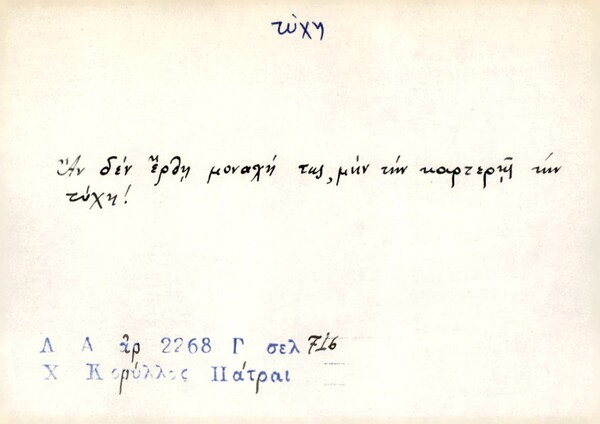 τύχη
Ἂν δέν ἔρθῃ μοναχή της, μήν τήν καρτερῇς τήν
τύχη!
Λ Α ἀρ 2268 Γ σελ 716
Χ Κορύλλος Πάτραι